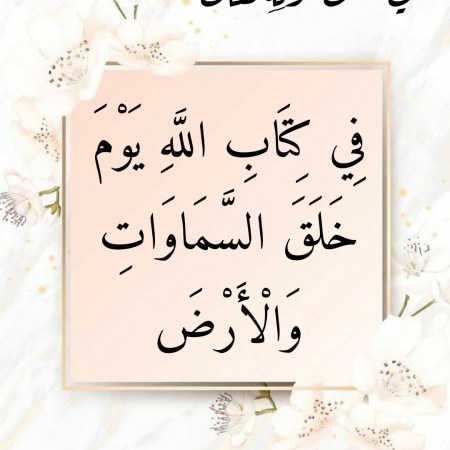 فِي كِتَابِ اللَّهِ يَوْمَ
خَلَقَ السَّمَاوَاتِ
وَالْأَرْضَ